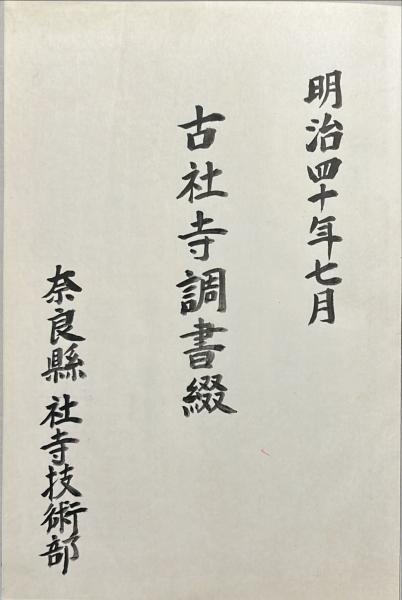 明治四十年七月
古社寺調書綴
奈良縣社寺技術部